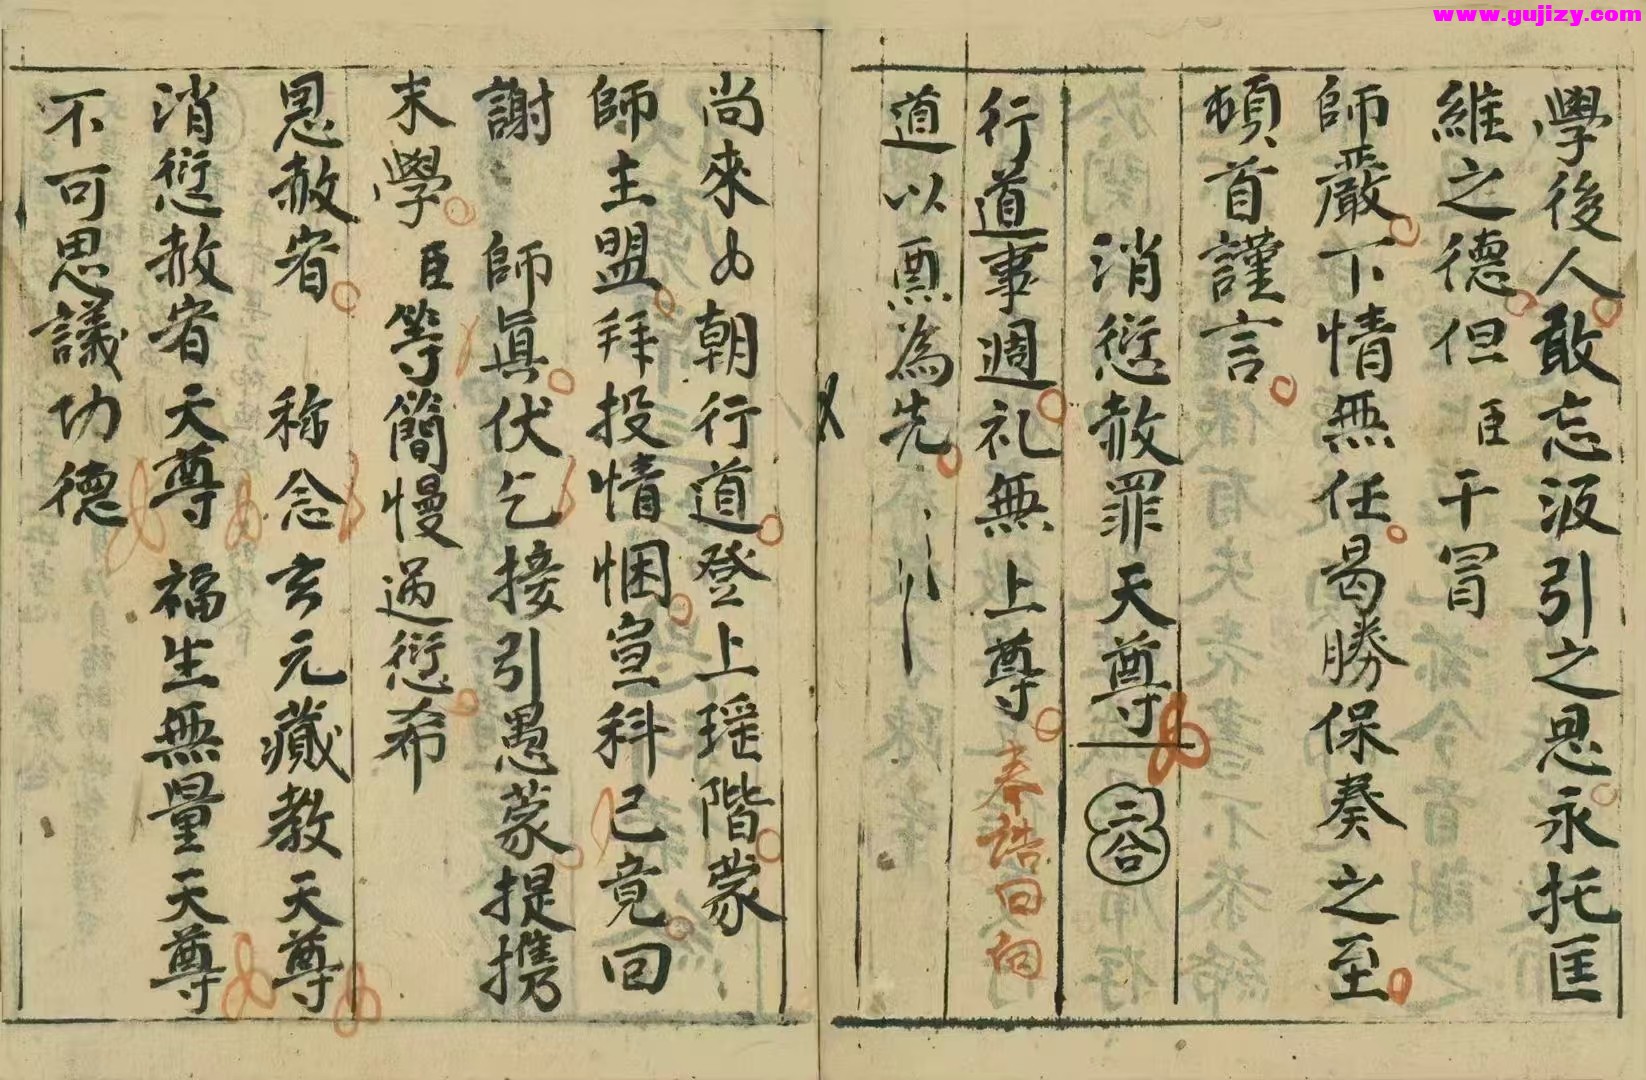 www.gujizy.com
學後人敢忘汲引之恩永托匡
維之德但臣干冒
師嚴下情無任曷勝保奏之至
頓首謹言
消愆赦罪天尊 二合
行道事週礼無上尊 奉誥回向
道以爲先
尚來如朝行道登上瑶階蒙
師主盟拜投情悃宣科已竟回
謝 師眞伏乞接引愚蒙提携
末學臣等簡慢過愆希
恩赦宥 称念玄元藏教天尊
消愆赦宥天尊 福生無量天尊
不可思議功德